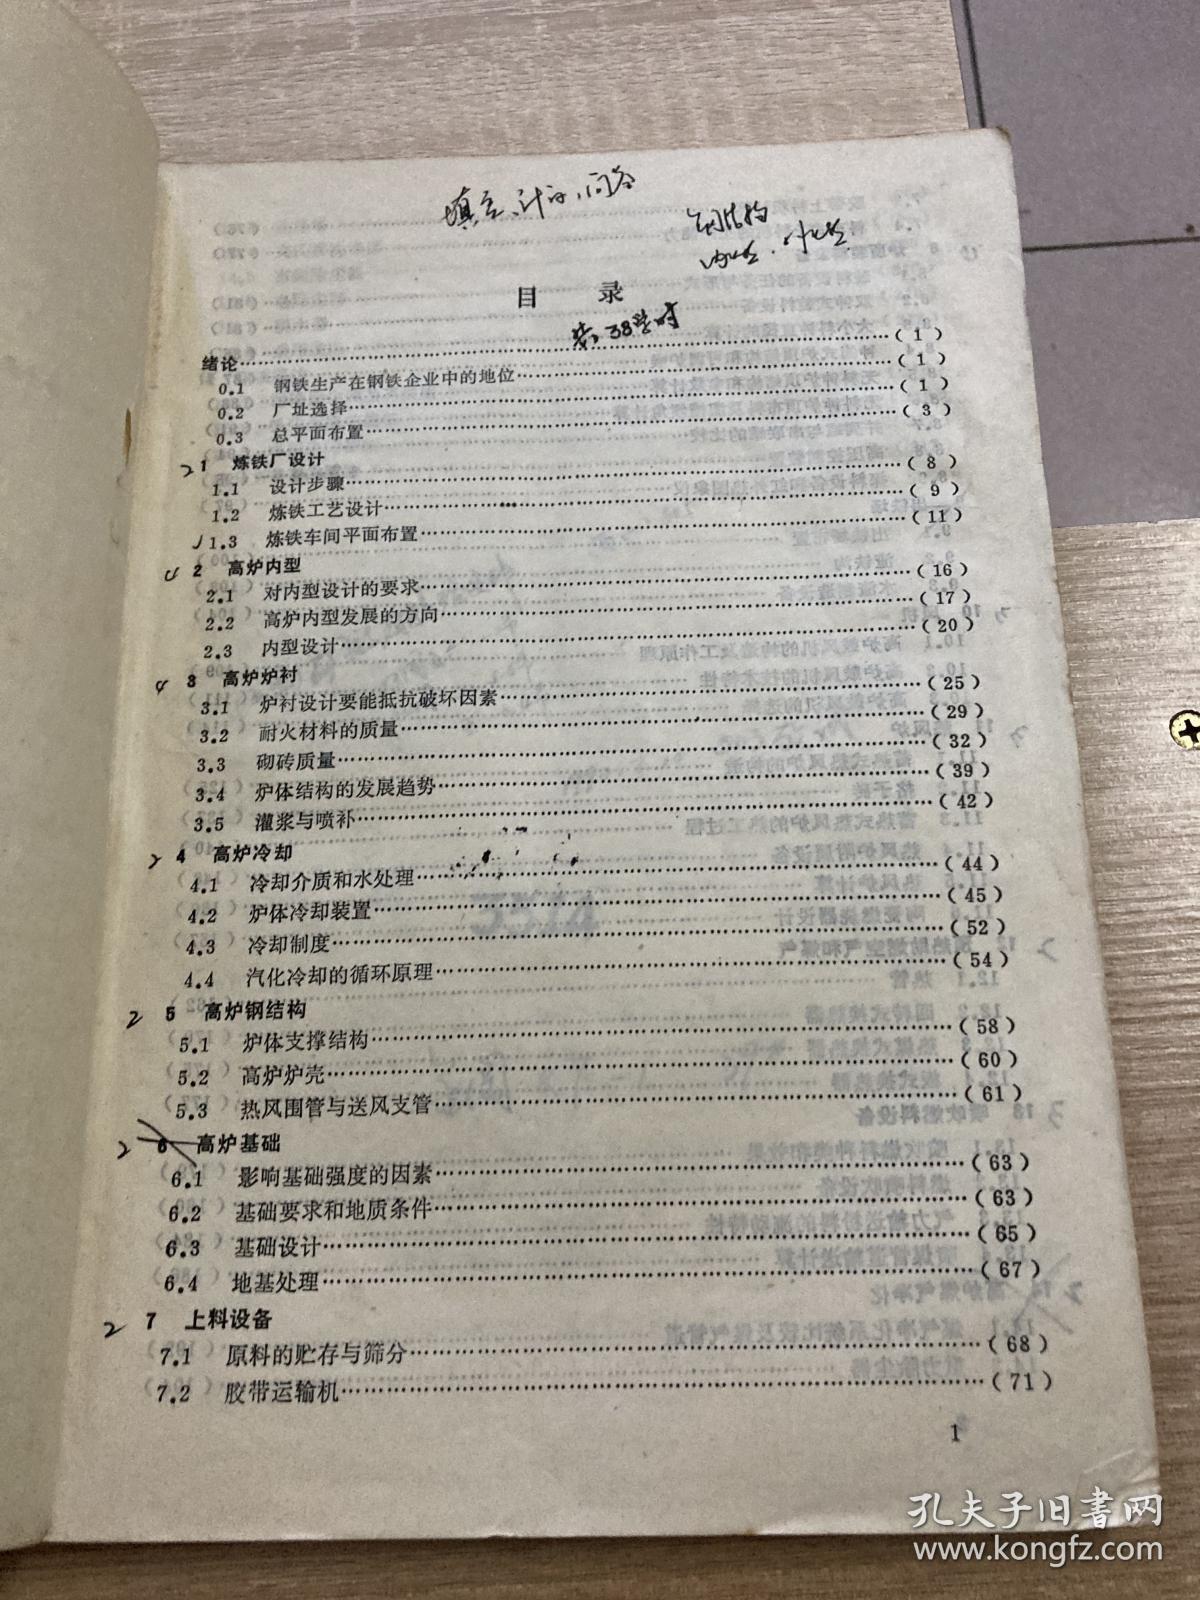 填空、计算、问答
钢结构
目 录
共38学时
绪论……(1)
0.1 钢铁生产在钢铁企业中的地位……(1)
0.2 厂址选择……(1)
0.3 总平面布置……(3)
2 1 炼铁厂设计
1.1 设计步骤……(8)
1.2 炼铁工艺设计……(9)
1.3 炼铁车间平面布置……(11)
4 2 高炉内型
2.1 对内型设计的要求……(16)
2.2 高炉内型发展的方向……(17)
2.3 内型设计……(20)
4 3 高炉炉衬
3.1 炉衬设计要能抵抗破坏因素……(25)
3.2 耐火材料的质量……(29)
3.3 砌砖质量……(32)
3.4 炉体结构的发展趋势……(39)
3.5 灌浆与喷补……(42)
2 4 高炉冷却
4.1 冷却介质和水处理……(44)
4.2 炉体冷却装置……(45)
4.3 冷却制度……(52)
4.4 汽化冷却的循环原理……(54)
2 5 高炉钢结构
5.1 炉体支撑结构……(58)
5.2 高炉炉壳……(60)
5.3 热风围管与送风支管……(61)
2 6 高炉基础
6.1 影响基础强度的因素……(63)
6.2 基础要求和地质条件……(63)
6.3 基础设计……(65)
6.4 地基处理……(67)
2 7 上料设备
7.1 原料的贮存与筛分……(68)
7.2 胶带运输机……(71)
1
孔夫子旧书网
www.kongfz.com